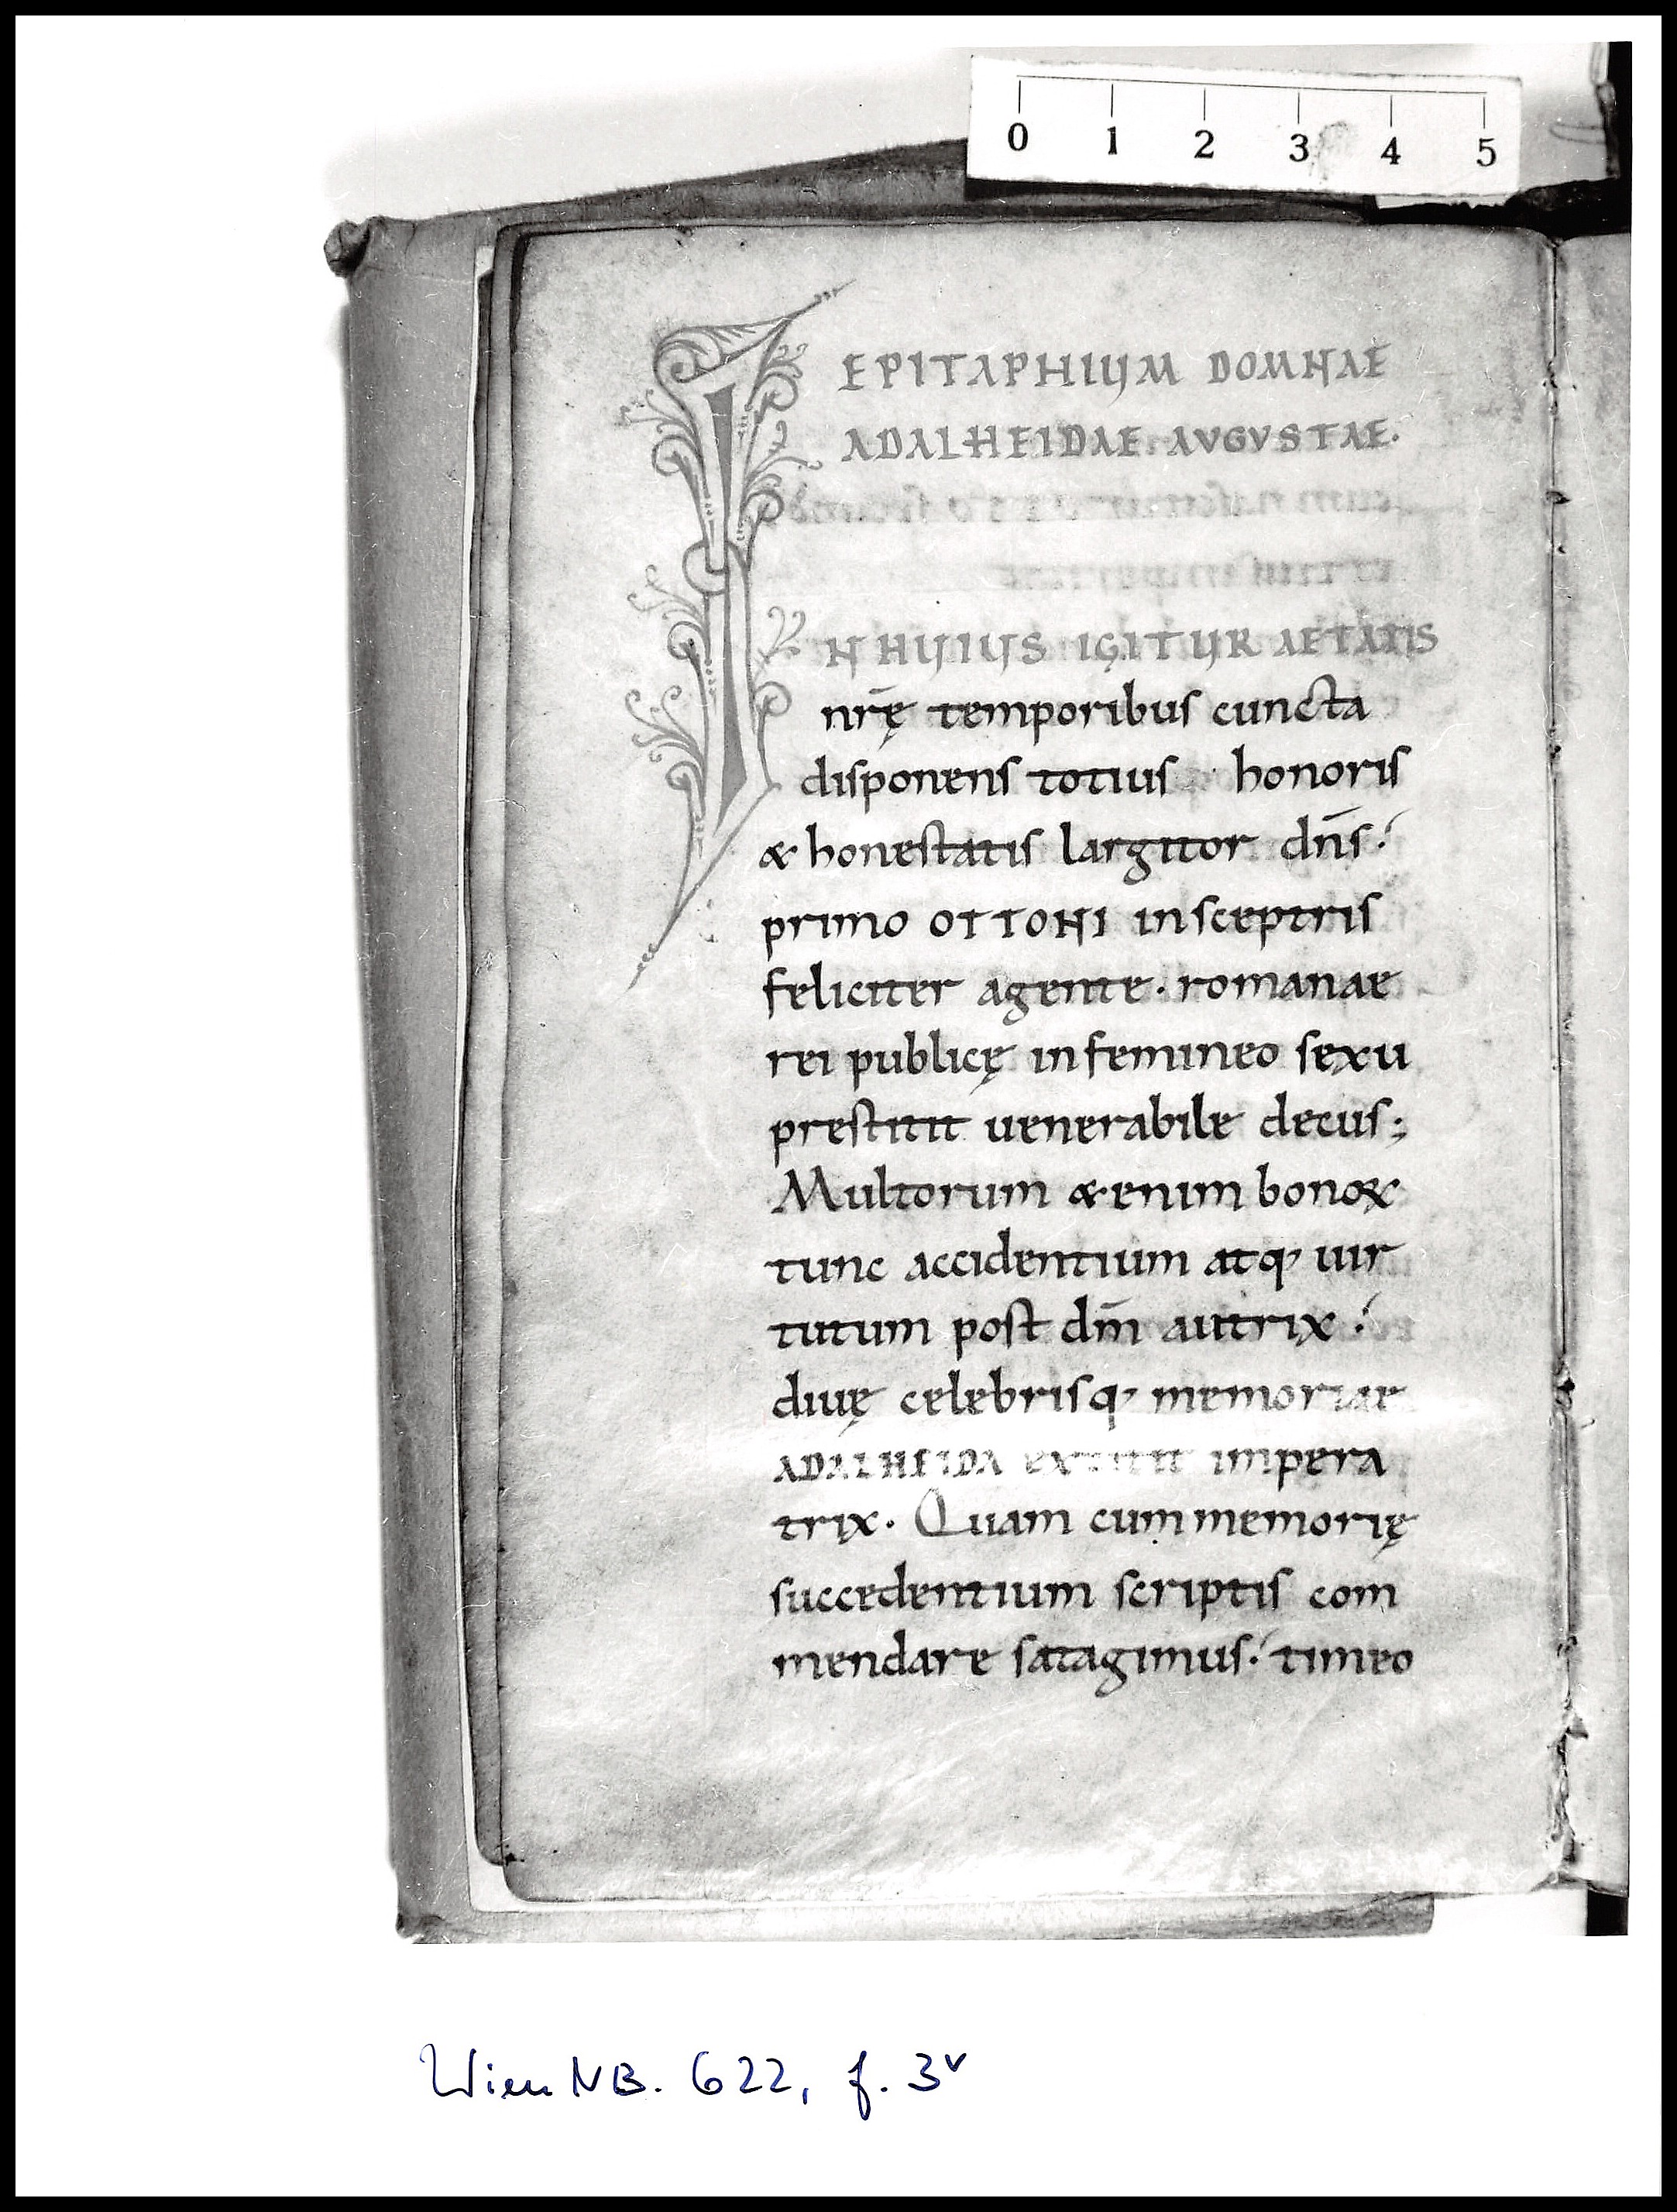 0 1 2 3 4 5
EPITAPHIUM DOMNAE
ADALHEIDAE AVGVSTAE.
IN HUIUS IGITUR AETATIS
nr̄ę temporibus cuncta
disponens totius honoris
& honestatis largitor dn̄s:
primo OTTONI in sceptris
feliciter agente. romanae
rei publicę in femineo sexu
prestitit uenerabile decus;
Multorum &enim bonoꝝ
tunc accidentium atq; uir
tutum post dm̄ autrix:
diuę celebrisq; memoriae
ADALHEIDA extitit impera
trix. Quam cum memorię
succedentium scriptis com
mendare satagimus: timeo
Wien NB. 622, f. 3v